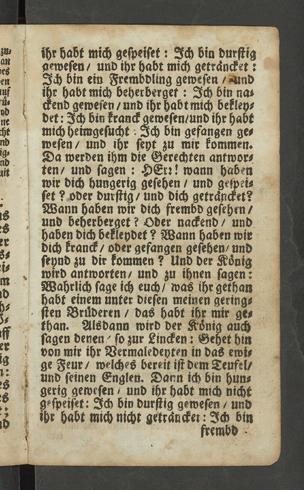 ihr habt mich gespeiset: Ich bin durstig
gewesen / und ihr habt mich geträncket:
Ich bin ein Frembdling gewesen / und
ihr habt mich beherberget: Ich bin na-
ckend gewesen / und ihr habt mich bekley-
det: Ich bin kranck gewesen / und ihr habt
mich heimgesucht: Ich bin gefangen ge-
wesen / und ihr seyt zu mir kommen.
Da werden ihm die Gerechten antwor-
ten / und sagen: HErr! wann haben
wir dich hungerig gesehen / und gespei-
set? oder durstig / und dich geträncket?
Wann haben wir dich frembd gesehen /
und beherberget? Oder nackend / und
haben dich bekleydet? Wann haben wir
dich kranck / oder gefangen gesehen / und
seynd zu dir kommen? Und der König
wird antworten / und zu ihnen sagen:
Wahrlich sage ich euch / was ihr gethan
habt einem unter diesen meinen gering-
sten Brüderen / das habt ihr mir ge-
than. Alsdann wird der König auch
sagen denen / so zur Lincken: Gehet hin
von mir ihr Vermaledeyten in das ewi-
ge Feur / welches bereit ist dem Teufel /
und seinen Englen. Dann ich bin hun-
gerig gewesen / und ihr habt mich nicht
gespeiset: Ich bin durstig gewesen / und
ihr habt mich nicht geträncket: Ich bin
frembd